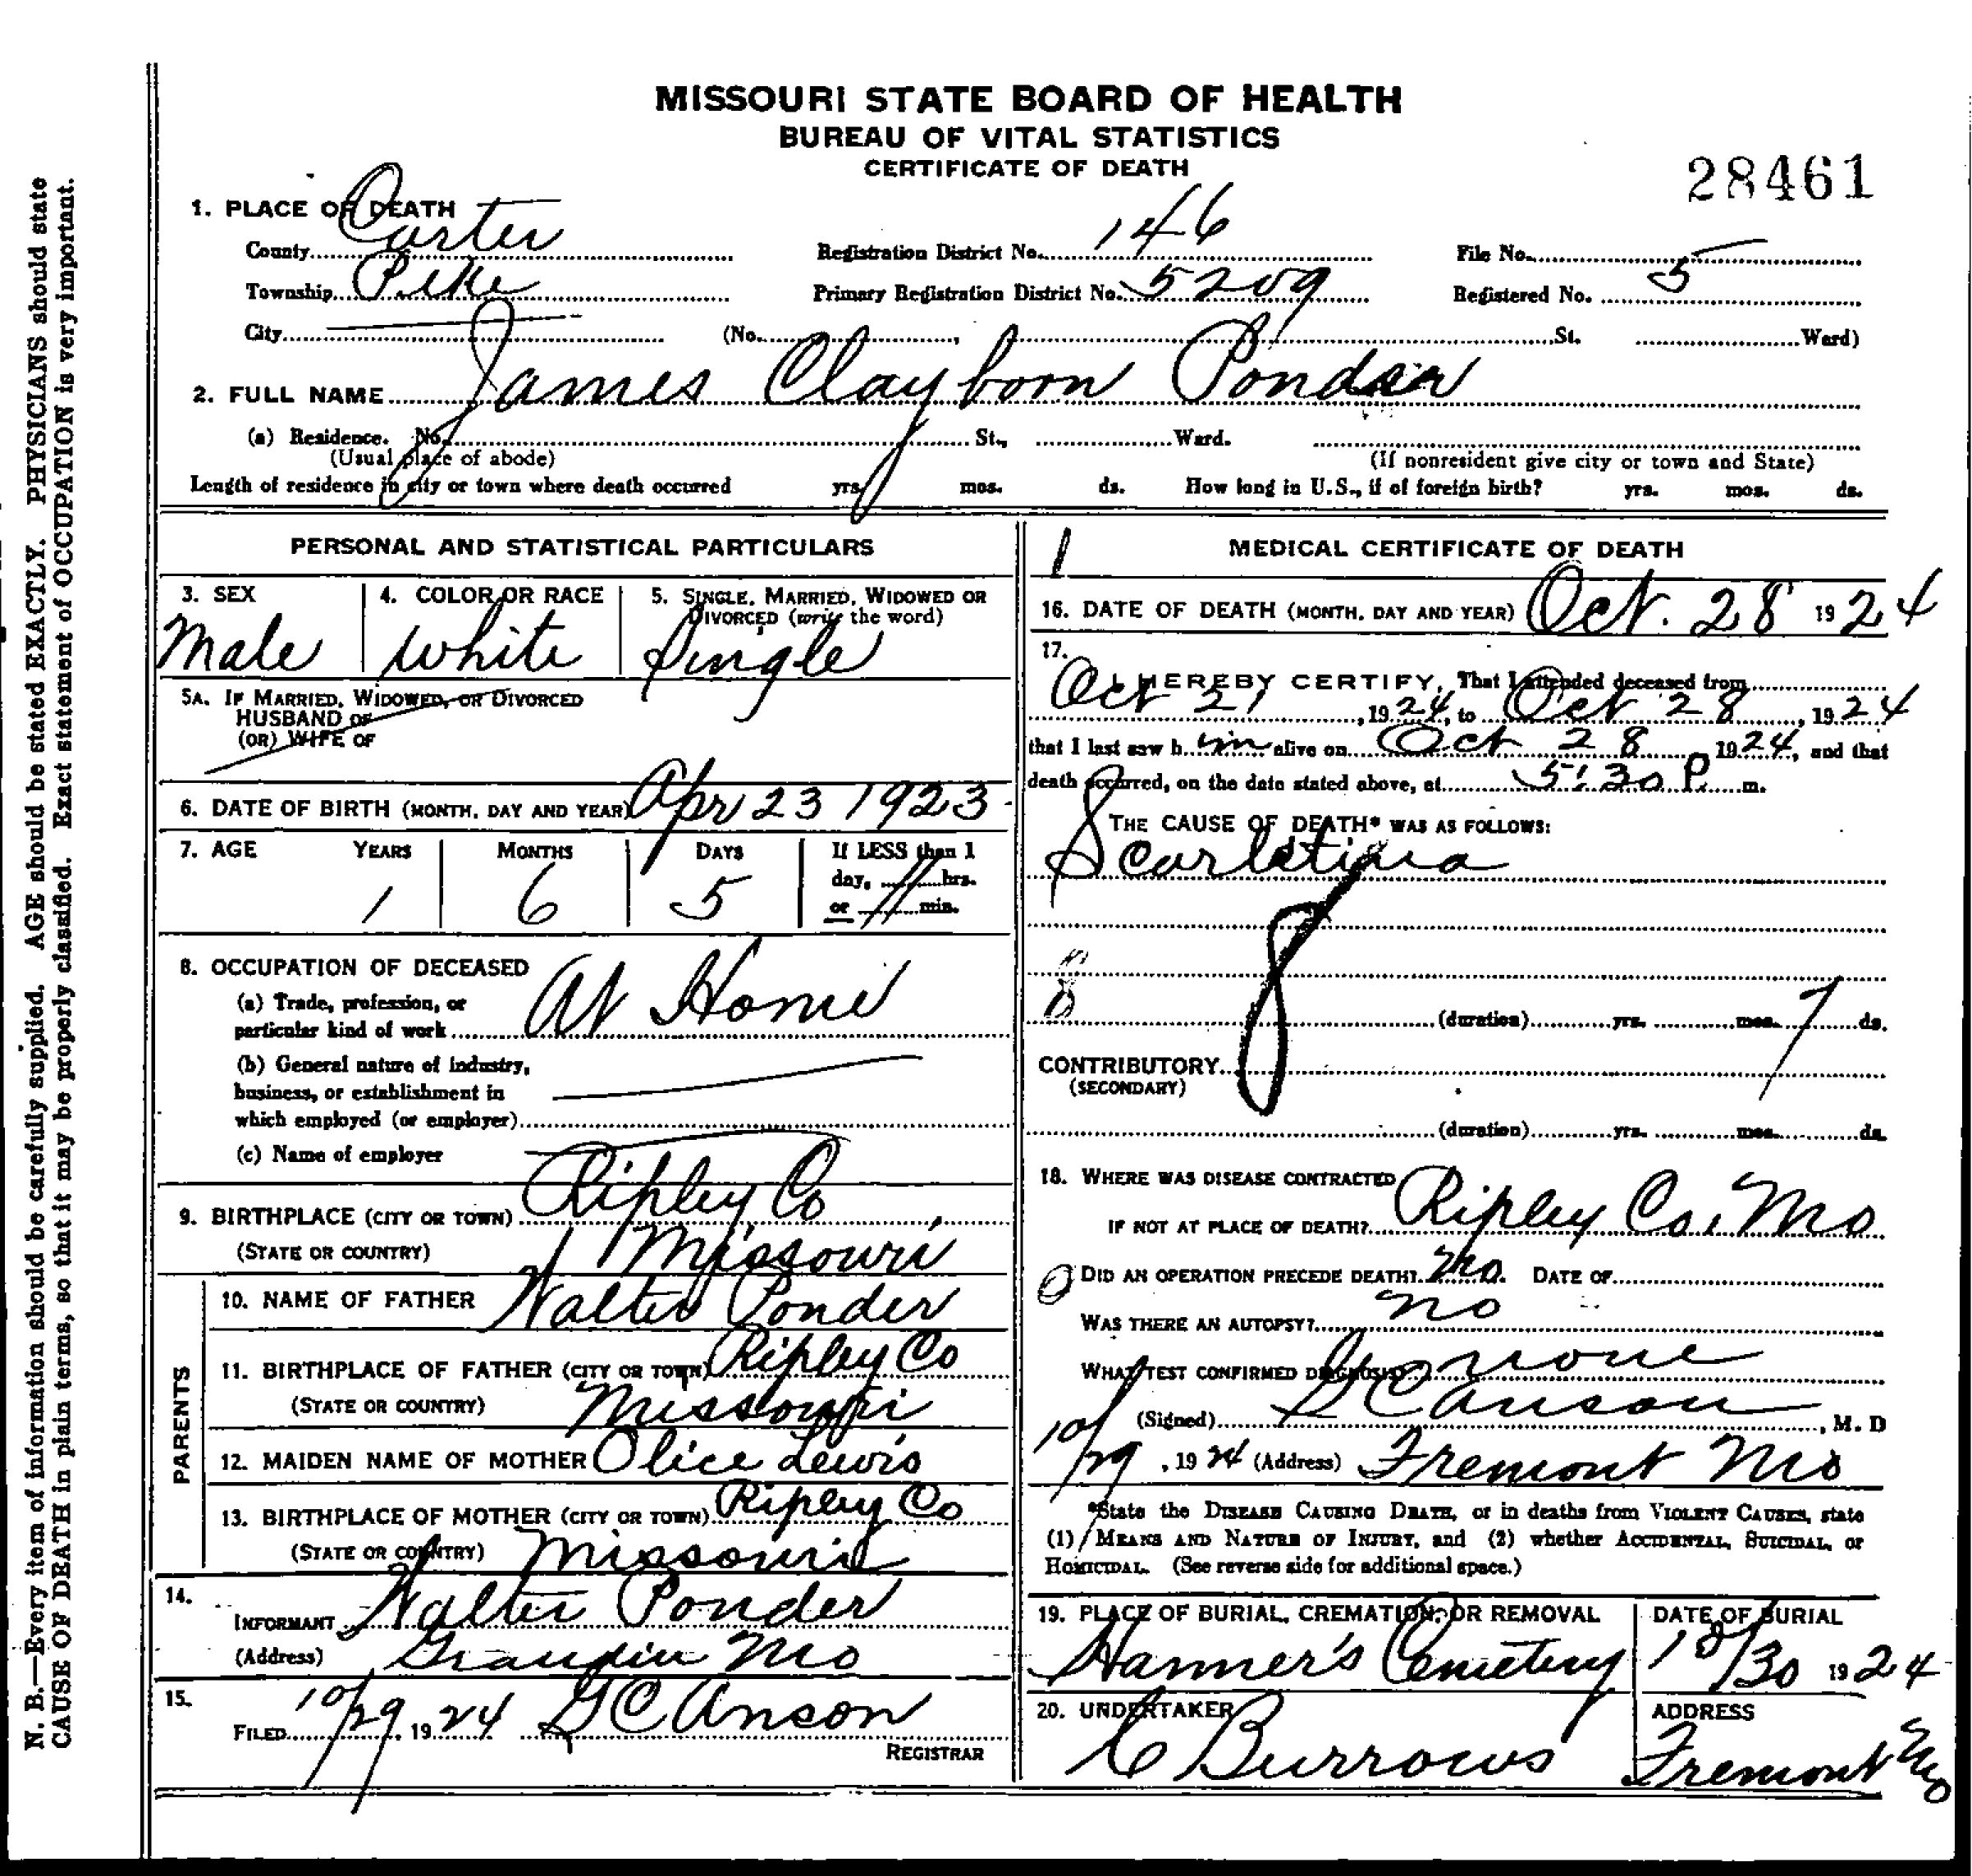 MISSOURI STATE BOARD OF HEALTH
BUREAU OF VITAL STATISTICS
CERTIFICATE OF DEATH
28461
1. PLACE OF DEATH
County Carter Registration District No. 146 File No.
Township Pike Primary Registration District No. 5209 Registered No. 5
City (No. , St. Ward)
2. FULL NAME James Clayborn Ponder
(a) Residence. No. St., Ward.
(Usual place of abode) (If nonresident give city or town and State)
Length of residence in city or town where death occurred yrs. mos. ds. How long in U.S., if of foreign birth? yrs. mos. ds.
PERSONAL AND STATISTICAL PARTICULARS
3. SEX 4. COLOR OR RACE 5. SINGLE, MARRIED, WIDOWED OR
DIVORCED (write the word)
Male White Single
5A. IF MARRIED, WIDOWED, OR DIVORCED
HUSBAND OF
(OR) WIFE OF
6. DATE OF BIRTH (MONTH, DAY AND YEAR) Apr 23 1923
7. AGE YEARS MONTHS DAYS If LESS than 1
day, hrs.
or min.
1 6 5
8. OCCUPATION OF DECEASED
(a) Trade, profession, or
particular kind of work At Home
(b) General nature of industry,
business, or establishment in
which employed (or employer)
(c) Name of employer
9. BIRTHPLACE (CITY OR TOWN) Ripley Co
(STATE OR COUNTRY) Missouri
PARENTS
10. NAME OF FATHER Walter Ponder
11. BIRTHPLACE OF FATHER (CITY OR TOWN) Ripley Co
(STATE OR COUNTRY) Missouri
12. MAIDEN NAME OF MOTHER Olice Lewis
13. BIRTHPLACE OF MOTHER (CITY OR TOWN) Ripley Co
(STATE OR COUNTRY) Missouri
14.
INFORMANT Walter Ponder
(Address) Grandin Mo
15.
FILED 10/29, 1924 G C Anson
REGISTRAR
1 MEDICAL CERTIFICATE OF DEATH
16. DATE OF DEATH (MONTH, DAY AND YEAR) Oct. 28 1924
17.
I HEREBY CERTIFY, That I attended deceased from
Oct 21, 1924, to Oct 28, 1924
that I last saw him alive on Oct 28, 1924, and that
death occurred, on the date stated above, at 5:30 P. m.
THE CAUSE OF DEATH* WAS AS FOLLOWS:
Scarlatina
8
8 (duration) yrs. mos. 7 ds.
CONTRIBUTORY
(SECONDARY)
(duration) yrs. mos. ds.
18. WHERE WAS DISEASE CONTRACTED
IF NOT AT PLACE OF DEATH? Ripley Co, Mo
DID AN OPERATION PRECEDE DEATH? No. DATE OF
WAS THERE AN AUTOPSY? no
WHAT TEST CONFIRMED DIAGNOSIS? none
(Signed) G C Anson, M. D
10/29, 1924 (Address) Fremont Mo
*State the DISEASE CAUSING DEATH, or in deaths from VIOLENT CAUSES, state
(1) MEANS AND NATURE OF INJURY, and (2) whether ACCIDENTAL, SUICIDAL, or
HOMICIDAL. (See reverse side for additional space.)
19. PLACE OF BURIAL, CREMATION, OR REMOVAL DATE OF BURIAL
Hanner's Cemetery 10/30 1924
20. UNDERTAKER ADDRESS
C Burrows Fremont Mo
N. B.—Every item of information should be carefully supplied. AGE should be stated EXACTLY. PHYSICIANS should state
CAUSE OF DEATH in plain terms, so that it may be properly classified. Exact statement of OCCUPATION is very important.